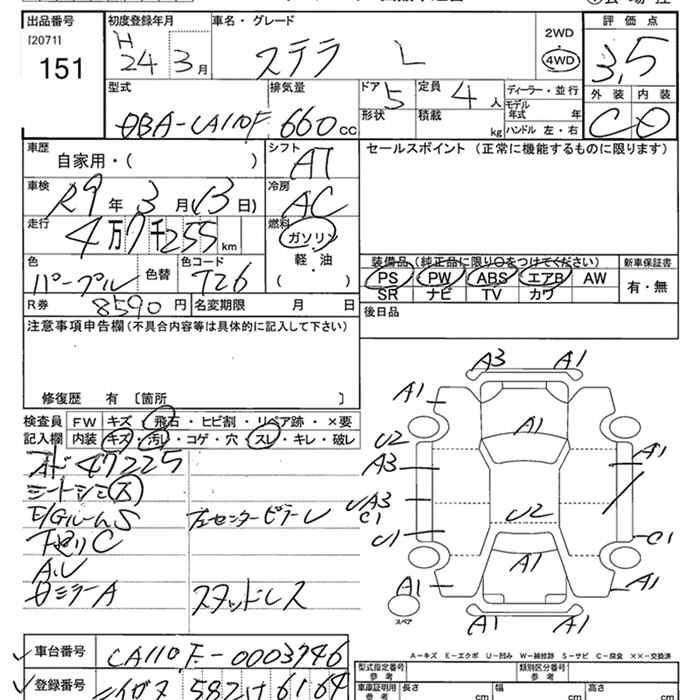 出品番号 初度登録年月 車名・グレード 2WD 評価点
[20711] H 24年3月 ステラ L 4WD 3.5
151
外装 内装
型式 排気量 ドア 5 定員 4人 ディーラー・並行
形状 積載 kg モデル年式 年
DBA-LA110F 660cc ハンドル 左・右 C D
車歴 シフト セールスポイント (正常に機能するものに限ります)
自家用・( ) AT
車検 冷房
R9年3月13日 AC
走行 燃料
4万7千255km ガソリン
軽・油
色 色替 色コード ( ) 装備品(純正品に限り○をつけてください) 新車保証書
パープル T26 PS PW ABS エアB AW 有・無
SR ナビ TV カワ
R券 8590円 名変期限 月 日 後日品
注意事項申告欄(不具合内容等は具体的に記入して下さい)
修復歴 有 〔箇所 〕
検査員記入欄 FW キズ・飛石・ヒビ割・リペア跡・×要
内装 キズ・汚レ・コゲ・穴・スレ・キレ・破レ
47225
シートシミ(ス)
E/GルームS 左センターピラーU
下廻りC
A.U
ミラーA スタッドレス
車台番号 LA110F-0003746
登録番号 582 6164
A3 A1
A1
A1
U2
A3 A1
UA3
C1
U2
U1 C1
A1
A1 A1
スペア
A1 A1
A…キズ E…エクボ U…凹み W…補修跡 S…サビ C…腐食 ××…交換済
型式指定番号 参考 類別区分番号 参考
車庫証明用 参考 長さ cm 幅 cm 高さ cm